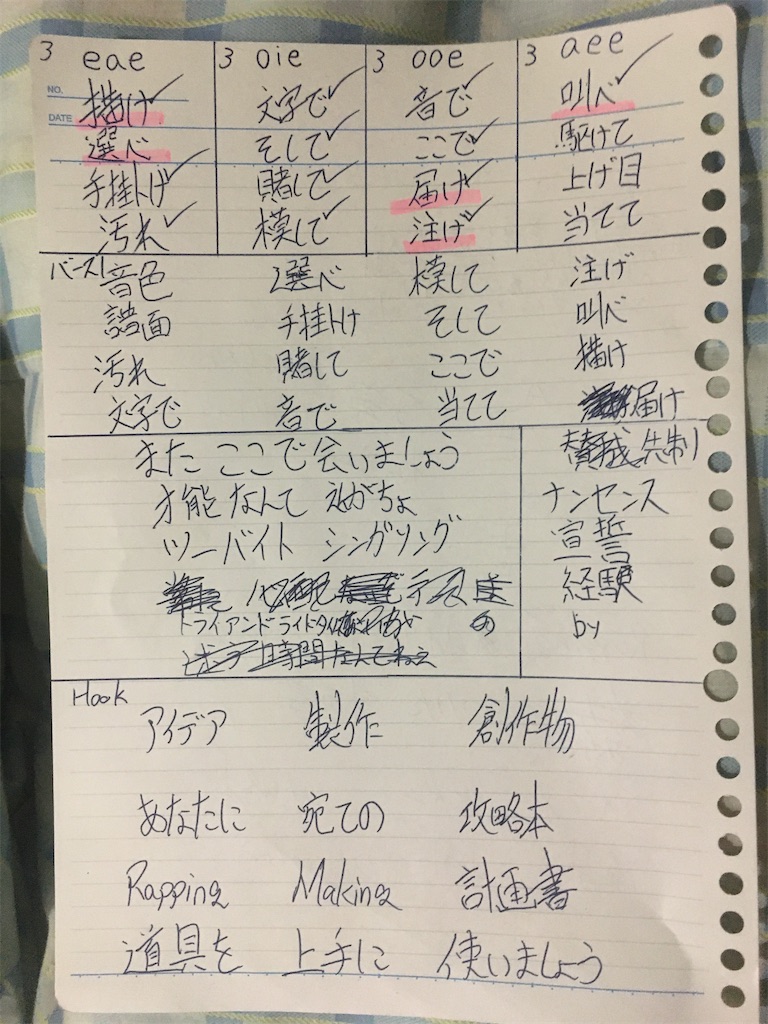 3 eae 3 oie 3 ooe 3 aee
NO.
描け 文字で 音で 叫べ
DATE
選べ そして ここで 駆けて
手掛け 賭して 届け 上げ目
汚れ 模して 注げ 当てて
バース1
音色 選べ 模して 注げ
譜面 手掛け そして 叫べ
汚れ 賭して ここで 描け
文字で 音で 当てて 届け
また ここで会いましょう 賛成 先制
才能なんて ねがちょ ナンセンス
ツーバイト シングソング 宣誓
経験
トライアンドライト の by
時間なんてねぇ
Hook
アイデア 製作 創作物
あなたに 宛ての 攻略本
Rapping Making 計画書
道具を 上手に 使いましょう